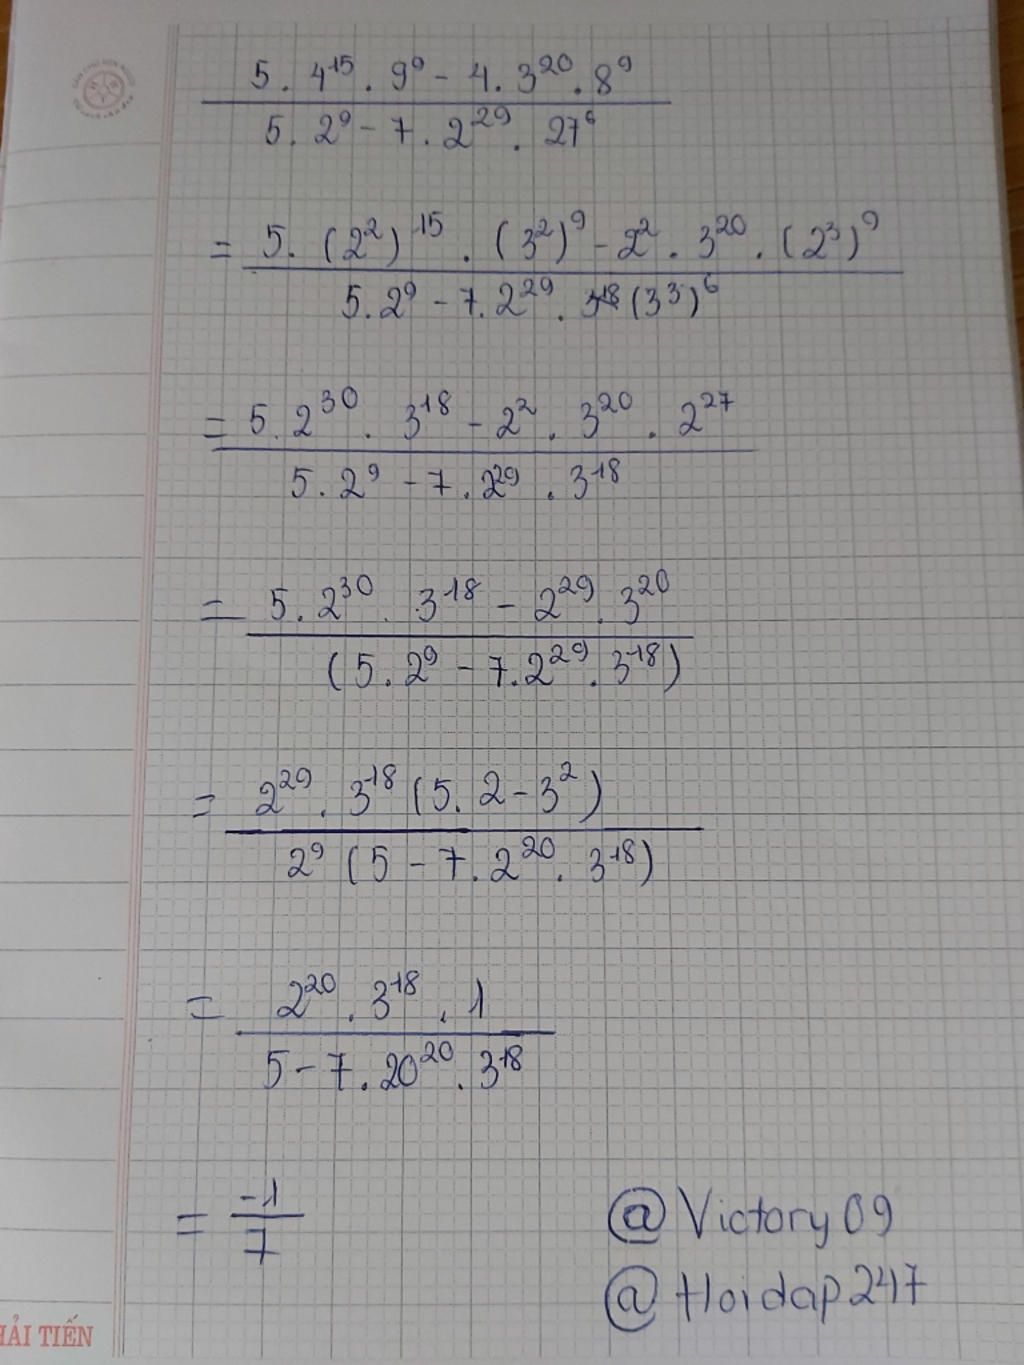 5 . 4^15 . 9^9 - 4 . 3^20 . 8^9
5 . 2^9 - 7 . 2^29 . 27^6
= 5 . (2^2)^15 . (3^2)^9 - 2^2 . 3^20 . (2^3)^9
5 . 2^9 - 7 . 2^29 . 3^18 (3^3)^6
= 5 . 2^30 . 3^18 - 2^2 . 3^20 . 2^27
5 . 2^9 - 7 . 2^29 . 3^18
= 5 . 2^30 . 3^18 - 2^29 . 3^20
(5 . 2^9 - 7 . 2^29 . 3^18)
= 2^29 . 3^18 (5 . 2 - 3^2)
2^9 (5 - 7 . 2^20 . 3^18)
= 2^20 . 3^18 . 1
5 - 7 . 20^20 . 3^18
= -1
7
@Victory09
@Hoidap247
HẢI TIẾN